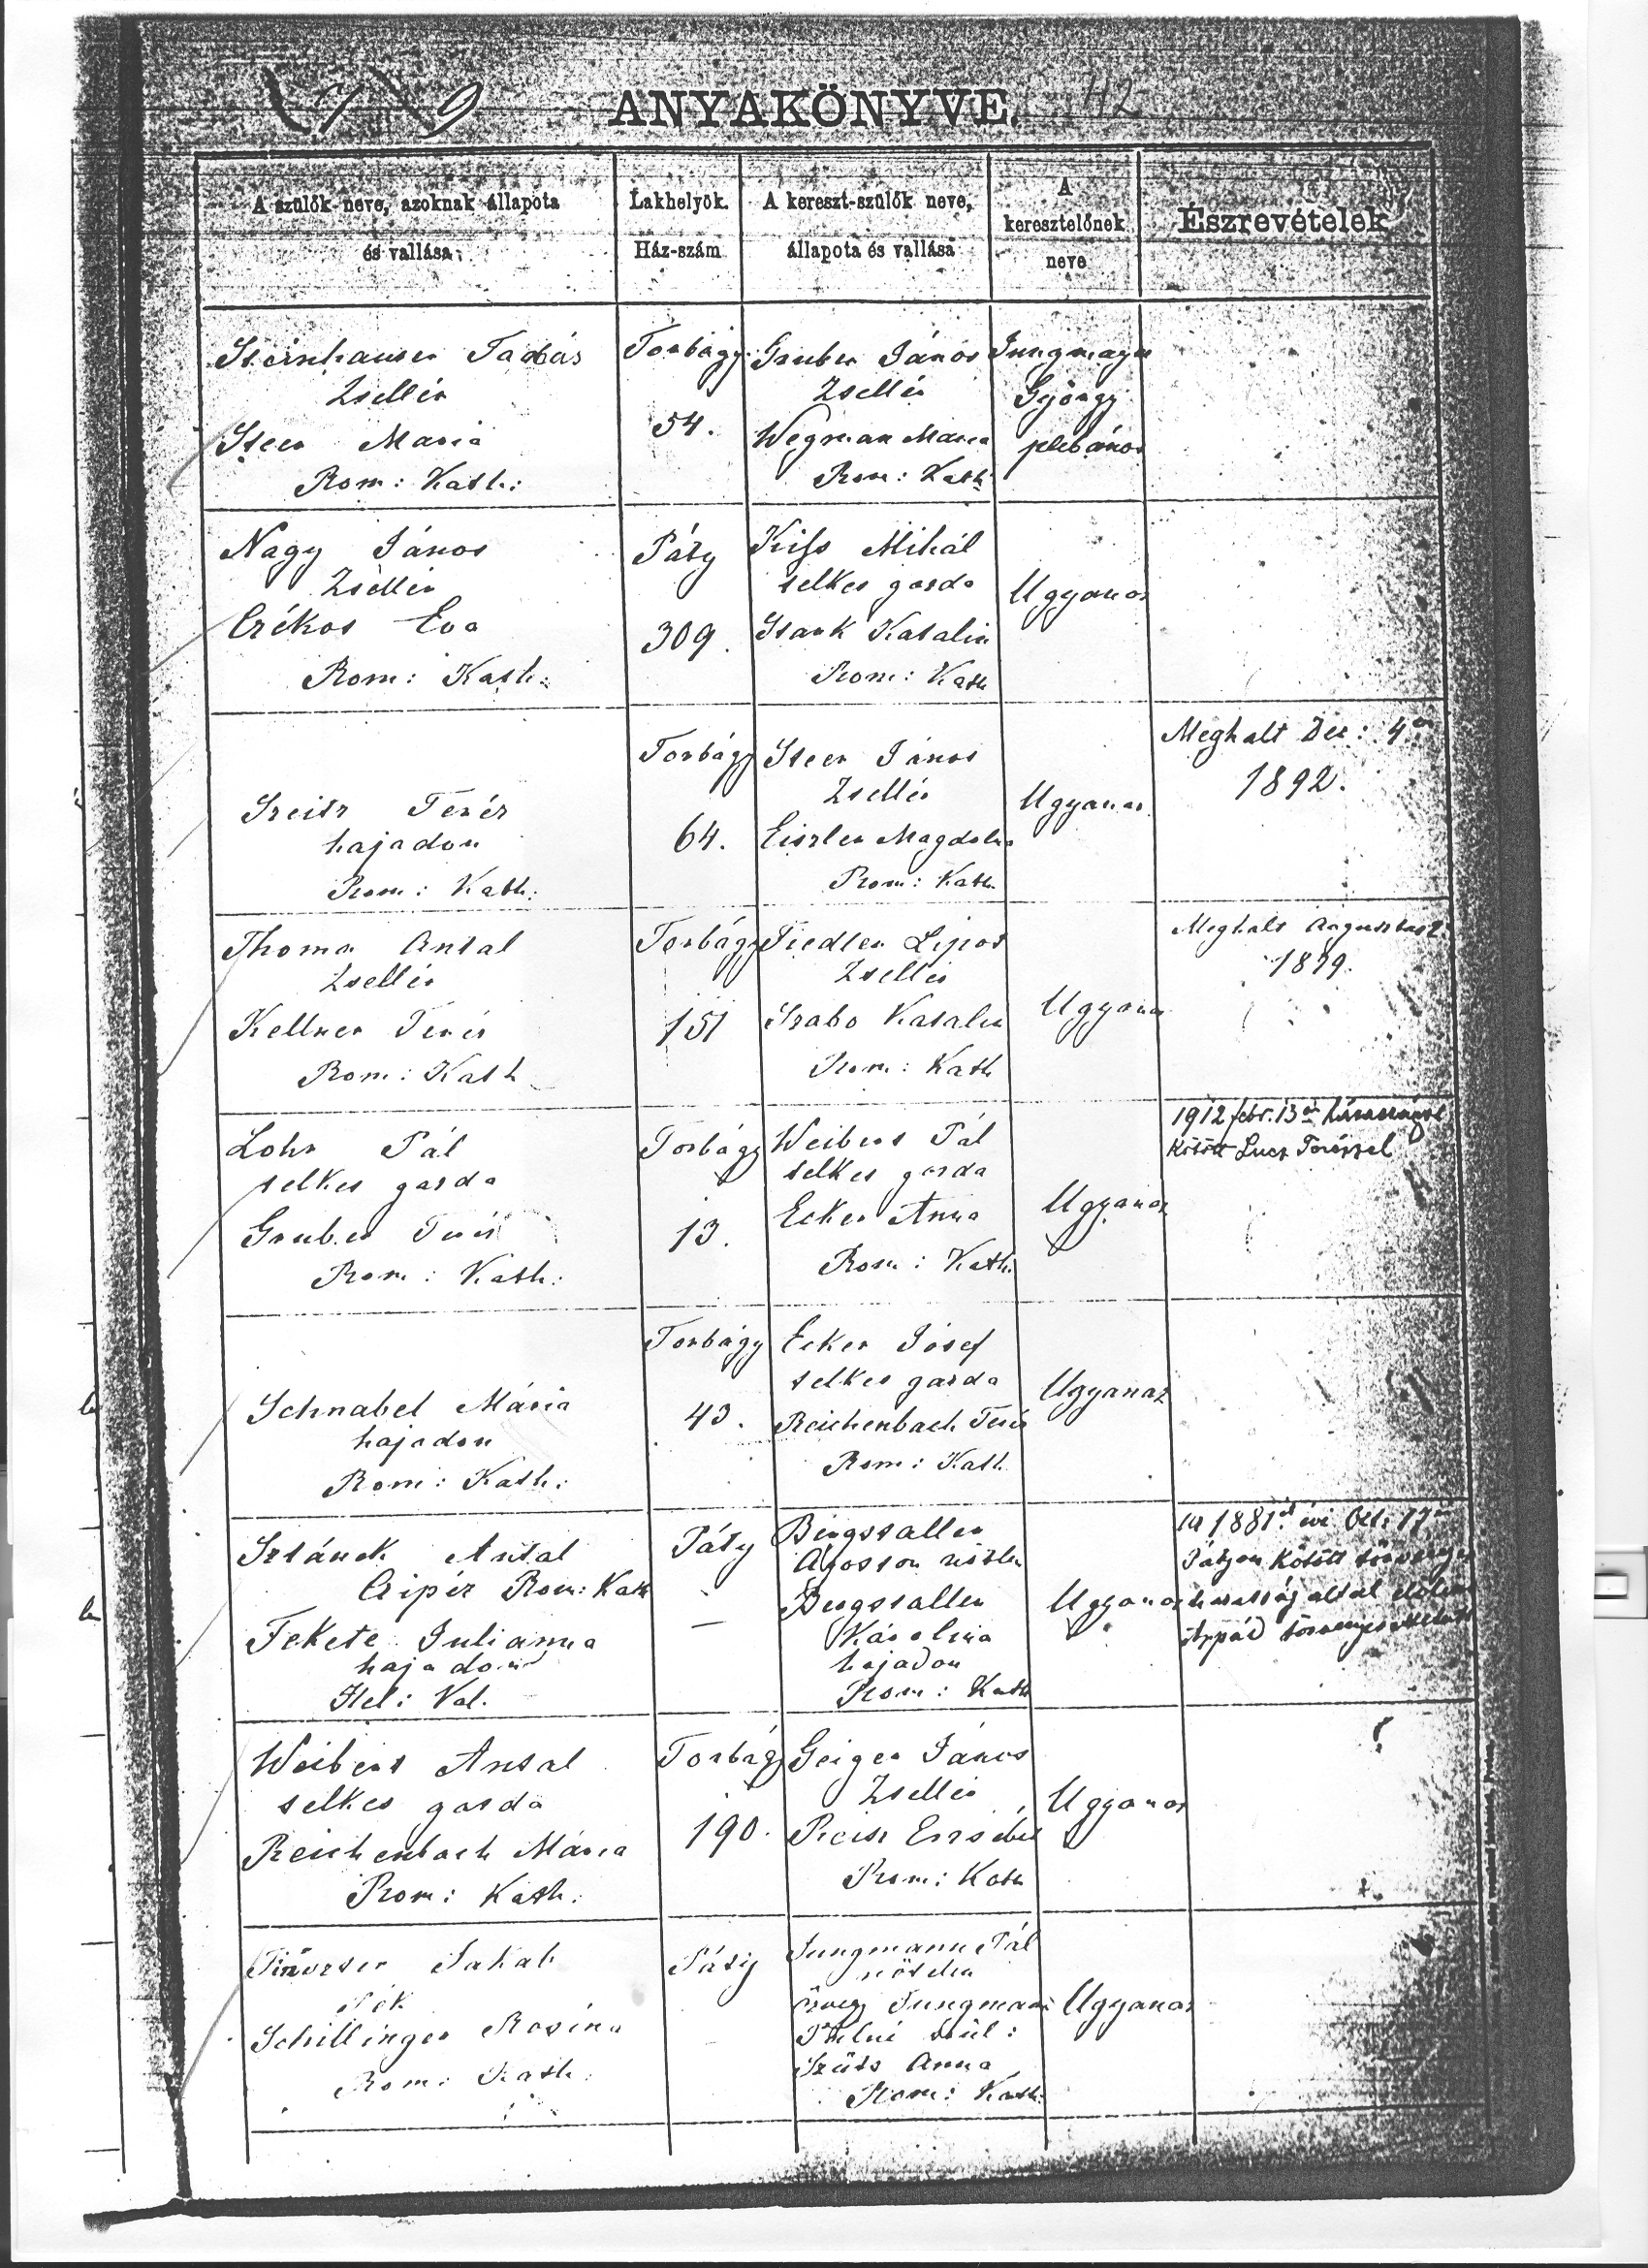 ANYAKÖNYVE. 42
A szülők neve, azoknak állapota
és vallása
Lakhelyök.
Ház-szám
A kereszt-szülők neve,
állapota és vallása
A
keresztelőnek
neve
Észrevételek
Steinhauser Tadás
Zsellér
Steer Maria
Rom: Kath:
Torbágy
54.
Gruber János
Zsellér
Wegman Maria
Rom: Kath
Jungmayer
György
plebános
Nagy János
Zsellér
Czékos Eva
Rom: Kath:
Páty
309.
Kiss Mihál
telkes gazda
Stark Katalin
Rom: Kath
Ugyanaz
Szeitz Teréz
hajadon
Rom: Kath:
Torbágy
64.
Steer János
Zsellér
Eiszler Magdolna
Rom: Kath
Ugyanaz
Meghalt Dec: 4én
1892.
Thoma Antal
Zsellér
Kellner Teréz
Rom: Kath
Torbágy
151
Fiedler Lipot
Zsellér
Szabo Katalin
Rom: Kath
Ugyanaz
Meghalt Augusztus
1879.
Lohr Pál
telkes gazda
Gruber Teréz
Rom: Kath:
Torbágy
13.
Weibert Pál
telkes gazda
Ecker Anna
Rom: Kath
Ugyanaz
1912 febr. 13án házasságot
kötött Lucz Terézzel
Schnabel Mária
hajadon
Rom: Kath:
Torbágy
43.
Ecker Jósef
telkes gazda
Reichenbach Teréz
Rom: Kath
Ugyanaz
Sztánek Antal
Czipéz Rom: Kath
Fekete Julianna
hajadon
Hel: Val.
Páty
—
Bergstaller
Ágoston nőtlen
Bergstaller
Károlina
hajadon
Rom: Kath
Ugyanaz
az 1881k évi Oct. 17én
Pátyon kötött törvényes
házasság által
Árpád
Weibert Antal
telkes gazda
Reichenbach Mária
Rom: Kath:
Torbágy
190.
Geiger János
Zsellér
Reisz Erzsébet
Rom: Kath
Ugyanaz
Jakab
Schillinger Rosina
Rom: Kath.
Páty
Jungmann Pál
nőtelen
özvegy Jungmann
Pálné szül:
Szüts Anna
Rom: Kath:
Ugyanaz